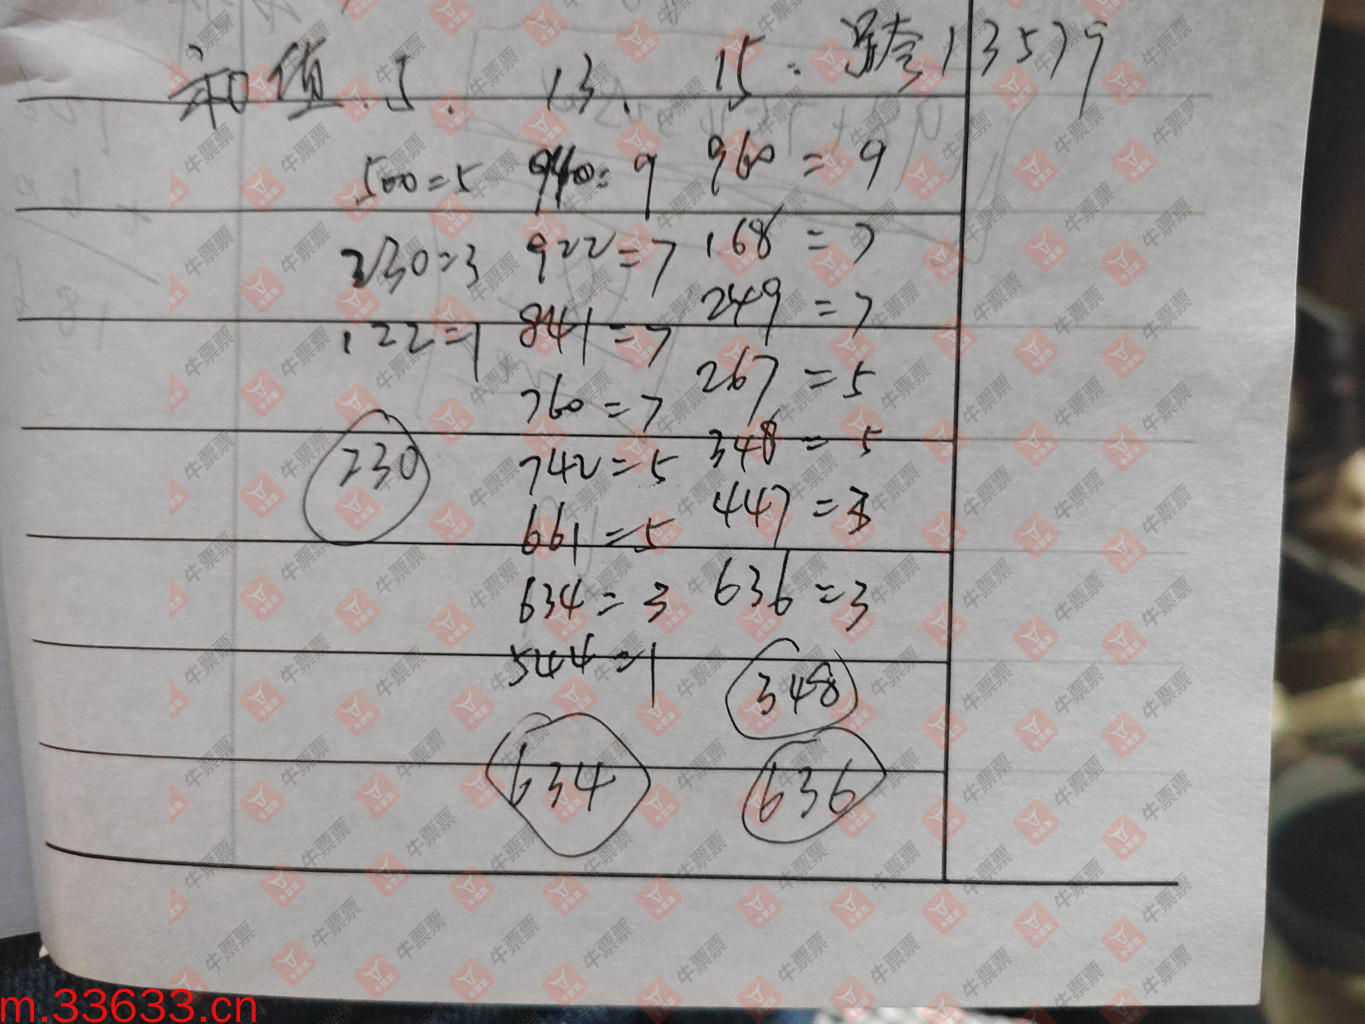 和值.5. 13. 15. 跨 13579
500=5 940=9 960=9
230=3 922=7 168=7
122=1 841=7 249=7
760=7 267=5
742=5 348=5
661=5 447=3
634=3 636=3
544=1
230
348
634
636
牛票票
m.33633.cn